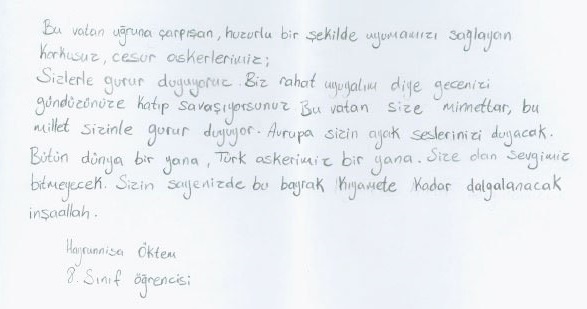 Bu vatan uğruna çarpışan, huzurlu bir şekilde uyumamızı sağlayan
korkusuz, cesur askerlerimiz;
Sizlerle gurur duyuyoruz. Biz rahat uyuyalım diye gecenizi
gündüzünüze katıp savaşıyorsunuz Bu vatan size minnettar, bu
millet sizinle gurur duyuyor. Avrupa sizin ayak seslerinizi duyacak.
Bütün dünya bir yana, Türk askerimiz bir yana. Size olan sevgimiz
bitmeyecek. Sizin sayenizde bu bayrak kıyamete kadar dalgalanacak
inşaallah.
Hayrunnisa Öktem
8. Sınıf öğrencisi